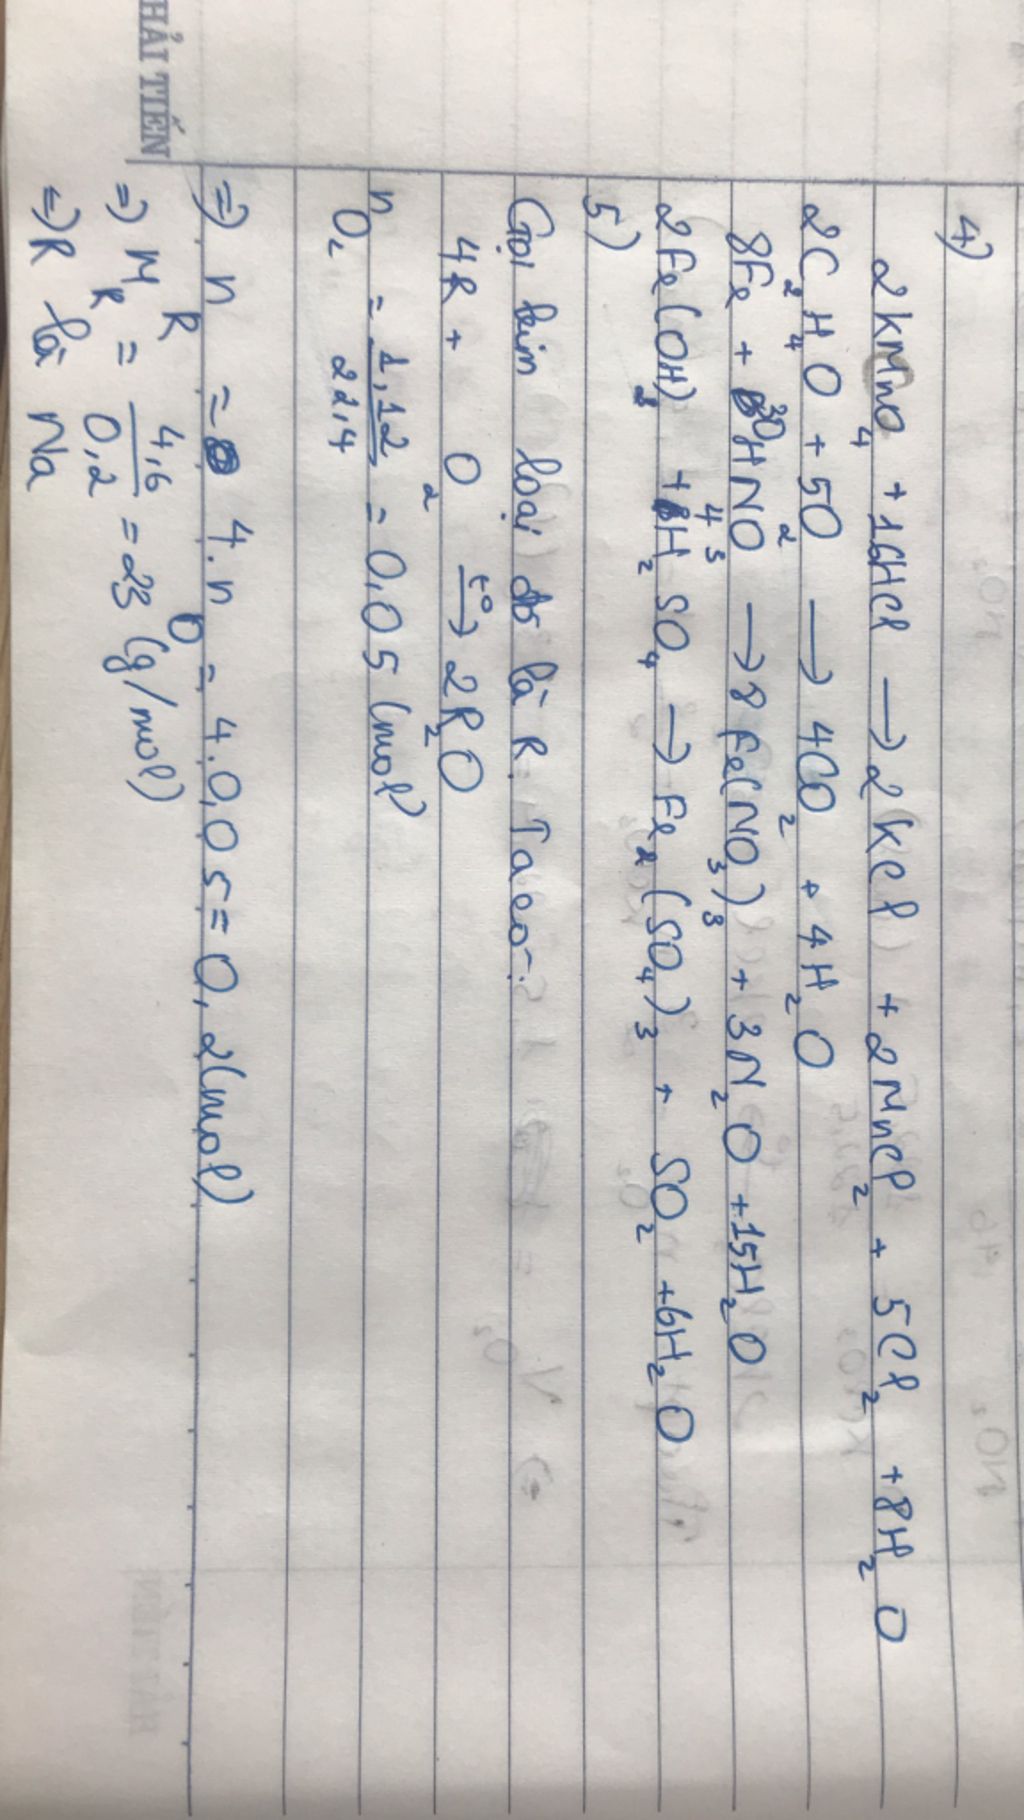 4)
2KMnO₄ + 16HCl → 2KCl + 2MnCl₂ + 5Cl₂ + 8H₂O
2C₂H₄O + 5O₂ → 4CO₂ + 4H₂O
8Fe + 30HNO₃ → 8Fe(NO₃)₃ + 3N₂O + 15H₂O
2Fe(OH)₂ + 4H₂SO₄ → Fe₂(SO₄)₃ + SO₂ + 6H₂O
5)
Gọi kim loại đó là R. Ta có:
4R + O₂ t°→ 2R₂O
n O₂ = 1,12/22,4 = 0,05 (mol)
=> n R = 4.n O = 4.0,05 = 0,2 (mol)
=> M R = 4,6/0,2 = 23 (g/mol)
=> R là Na
HẢI TIẾN